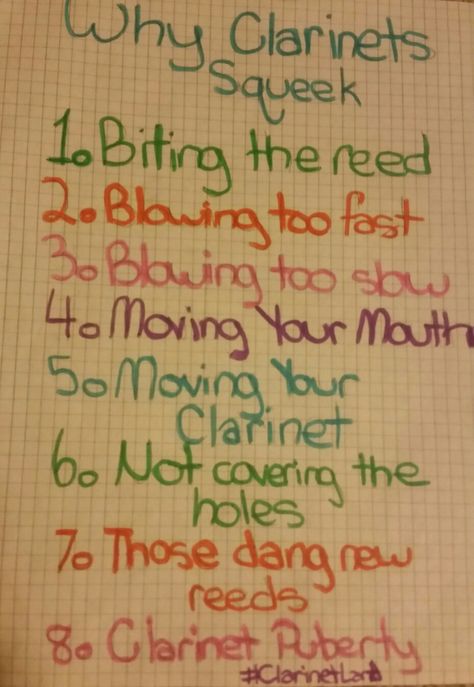 Why Clarinets
Squeek
1. Biting the reed
2. Blowing too fast
3. Blowing too slow
4. Moving Your Mouth
5. Moving Your
Clarinet
6. Not covering the
holes
7. Those dang new
reeds
8. Clarinet Puberty
#ClarinetLand